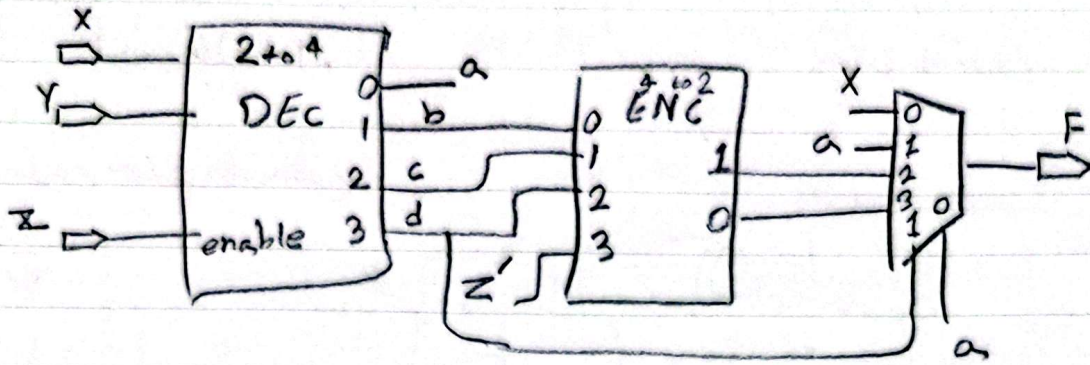 X
2 to 4
Y
DEC
Z
enable
0
1
2
3
a
b
c
d
4 to 2
ENC
0
1
2
3
Z'
1
0
X
a
0
1
2
3
1
0
F
a